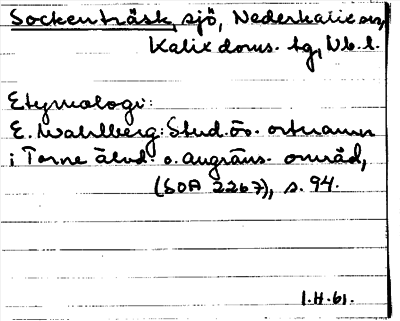 Sockenträsk, sjö, Nederkalix sn,
Kalix doms. tg, Nb. l.
Etymologi:
E. Wahlberg: Stud. öv. ortnamn
i Torne älvd. o. angräns. områd,
(SOA 2267), s. 94.
1.H.61.